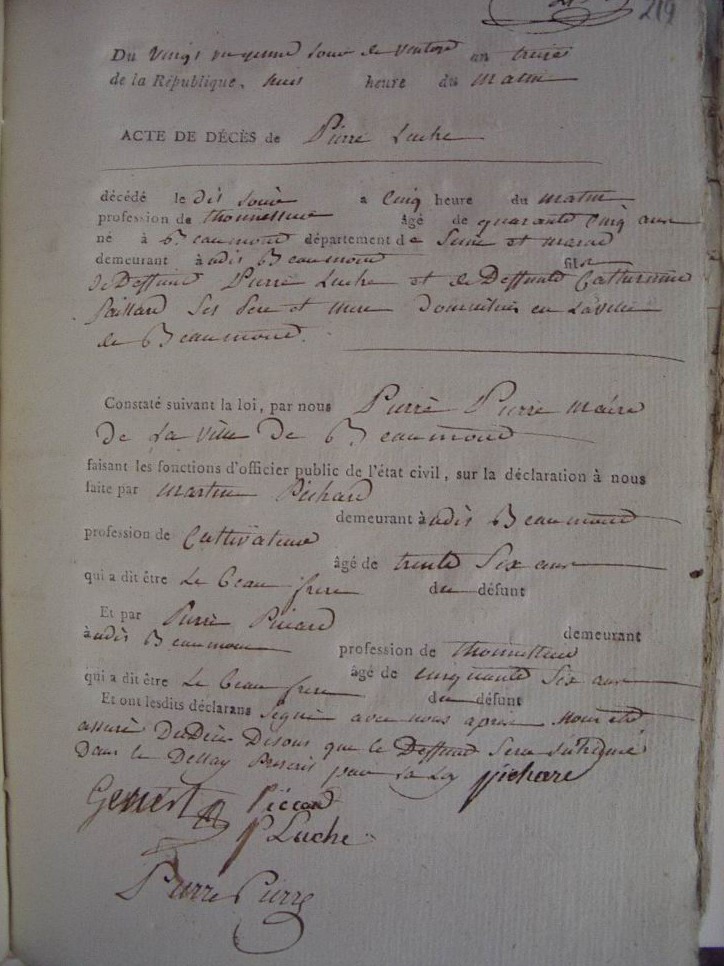 219
Du Vingt unyeme jour de Ventose an treize
de la République, huis heure du Matin
ACTE DE DÉCÈS de Pierre Luche
décédé le dis jour a Cinq heure du matin
profession de thonnellieur âgé de quarante Cinq ans
né à Beaumond département de Seine et marne
demeurant à udis Beaumond fils
de Deffund Pierre Luche et de Deffunte Catherinne
Paillard Ses Pere et Mere Domicilies en La ville
de Beaumond.
Constaté suivant la loi, par nous Pierre Pierre Maire
De La ville De Beaumond
faisant les fonctions d'officier public de l'état civil, sur la déclaration à nous
faite par Martin Pichard
demeurant à udis Beaumond
profession de Cultivateur
âgé de trente Six ans
qui a dit être Le Beau frere du défunt
Et par Pierre Picard demeurant
à udis Beaumond profession de thonnellieur
âgé de cinquante Six ans
qui a dit être Le Beau frere du défunt
Et ont lesdits déclarans Signé avec nous apres Nous etre
assuré Du Deces Disons que le Deffund Sera inhumé
Dans le Dellay Prescrit par La Loy pichare
Genest Piccard
P Luche
Pierre Pierre